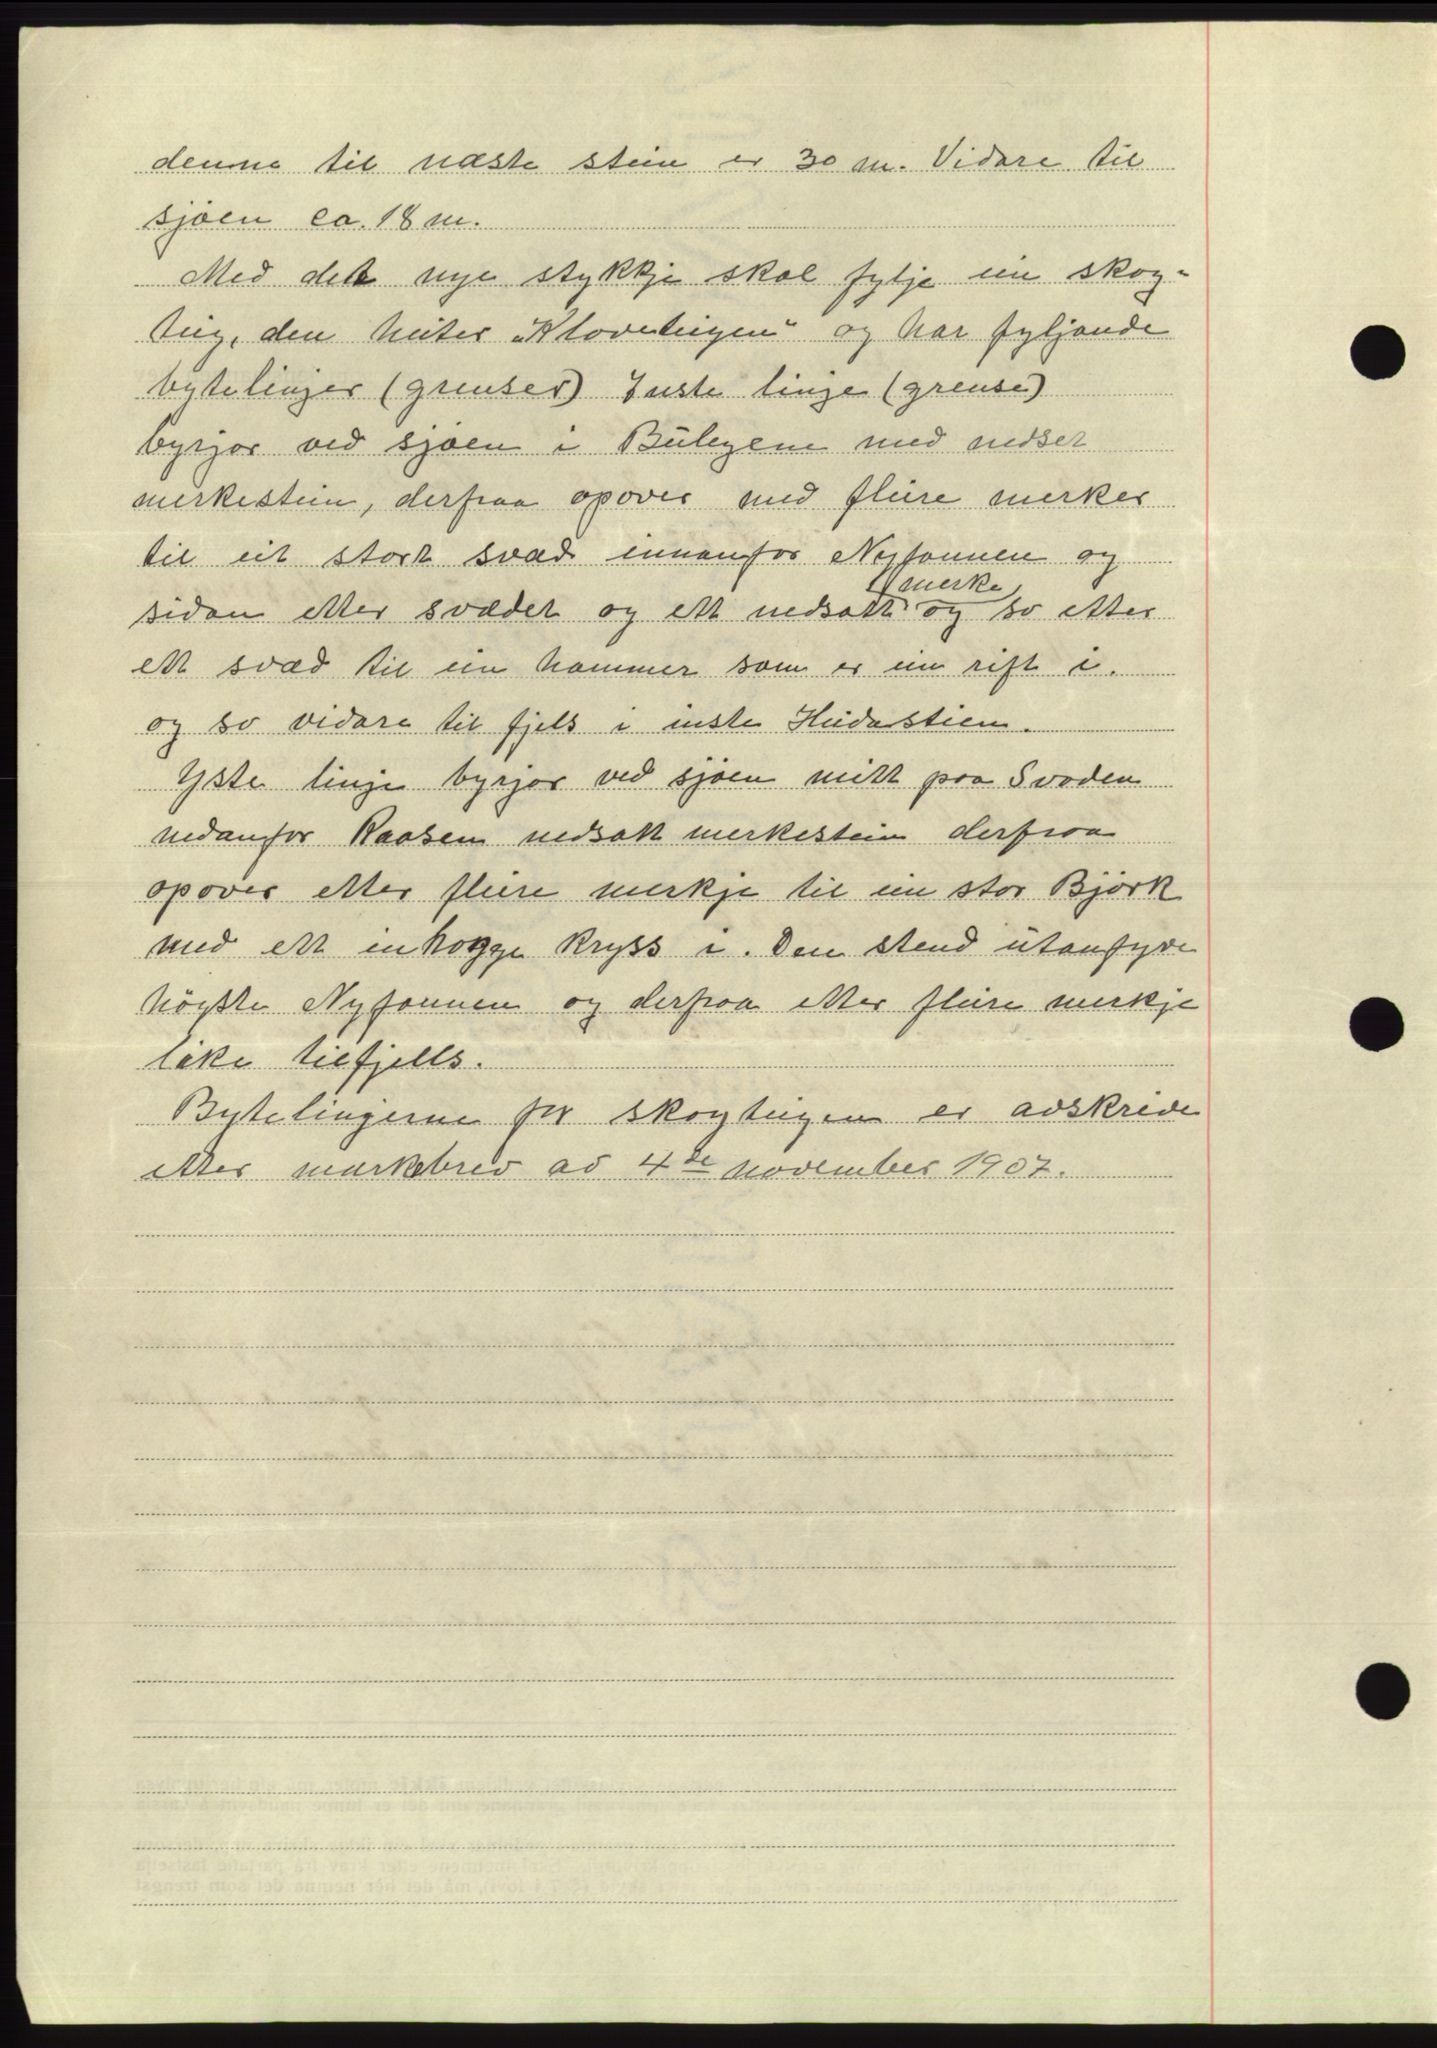 denne til næste stein er 30 m. Vidare til
sjøen ca. 18 m.
Med det nye stykkje skal fylje ein skog-
teig, den heiter „Kloveteigen" og har fyljande
bytelinjer (grenser) Inste linje (grense)
byrjar ved sjøen i Bulegene med nedset
merkestein, derfraa opover med fleire merker
til eit stort svæd innanfor Nyfonnen og
merke
sidan etter svædet og ett nedsatt og so etter
ett svæd til ein hammer som er ein rift i.
og so vidare til fjels i inste Heidastien.
Yste linje byrjar ved sjøen mitt paa Svaden
nedanfor Raasen nedsatt merkestein derfraa
opover etter fleire merkje til ein stor Björk
med ett inhogge kryss i. Den stend utanfyre
högste Nyfonnen og derfraa etter fleire merkje
like tilfjells.
Bytelinjerne for skogteigen er avskrive
etter markebrev av 4de november 1907.